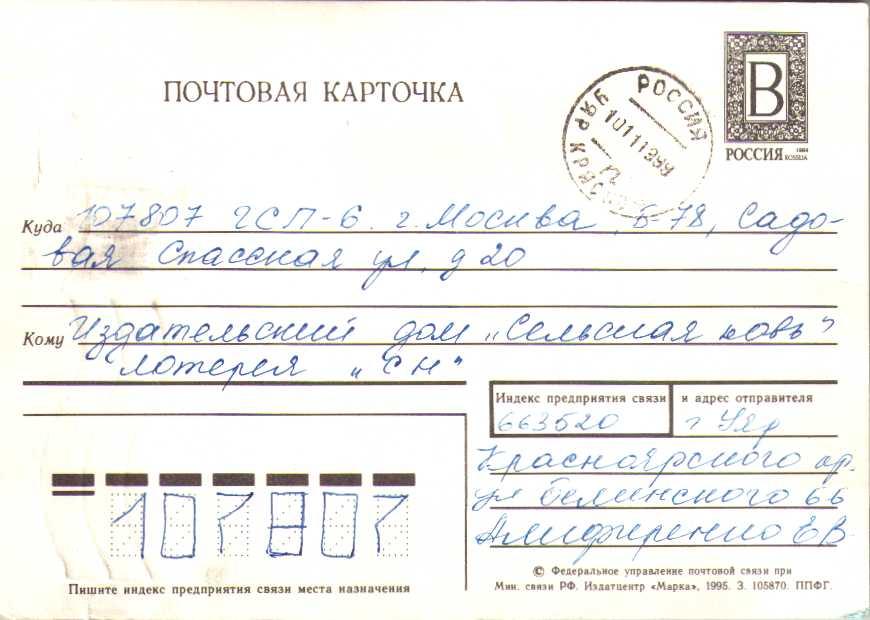 ПОЧТОВАЯ КАРТОЧКА
РОССИЯ
В
РОССИЯ 1994 ROSSIJA
Куда 107807 ГСП-6. г. Москва, Б-78, Садо-
вая Спасская ул, д 20
Кому Издательский дом „Сельская новь"
Лотерея „СН"
Индекс предприятия связи и адрес отправителя
663520 г Уяр
Красноярского кр.
ул Белинского 66
ЕВ
107807
Пишите индекс предприятия связи места назначения
© Федеральное управление почтовой связи при
Мин. связи РФ. Издатцентр «Марка», 1995. З. 105870. ППФГ.